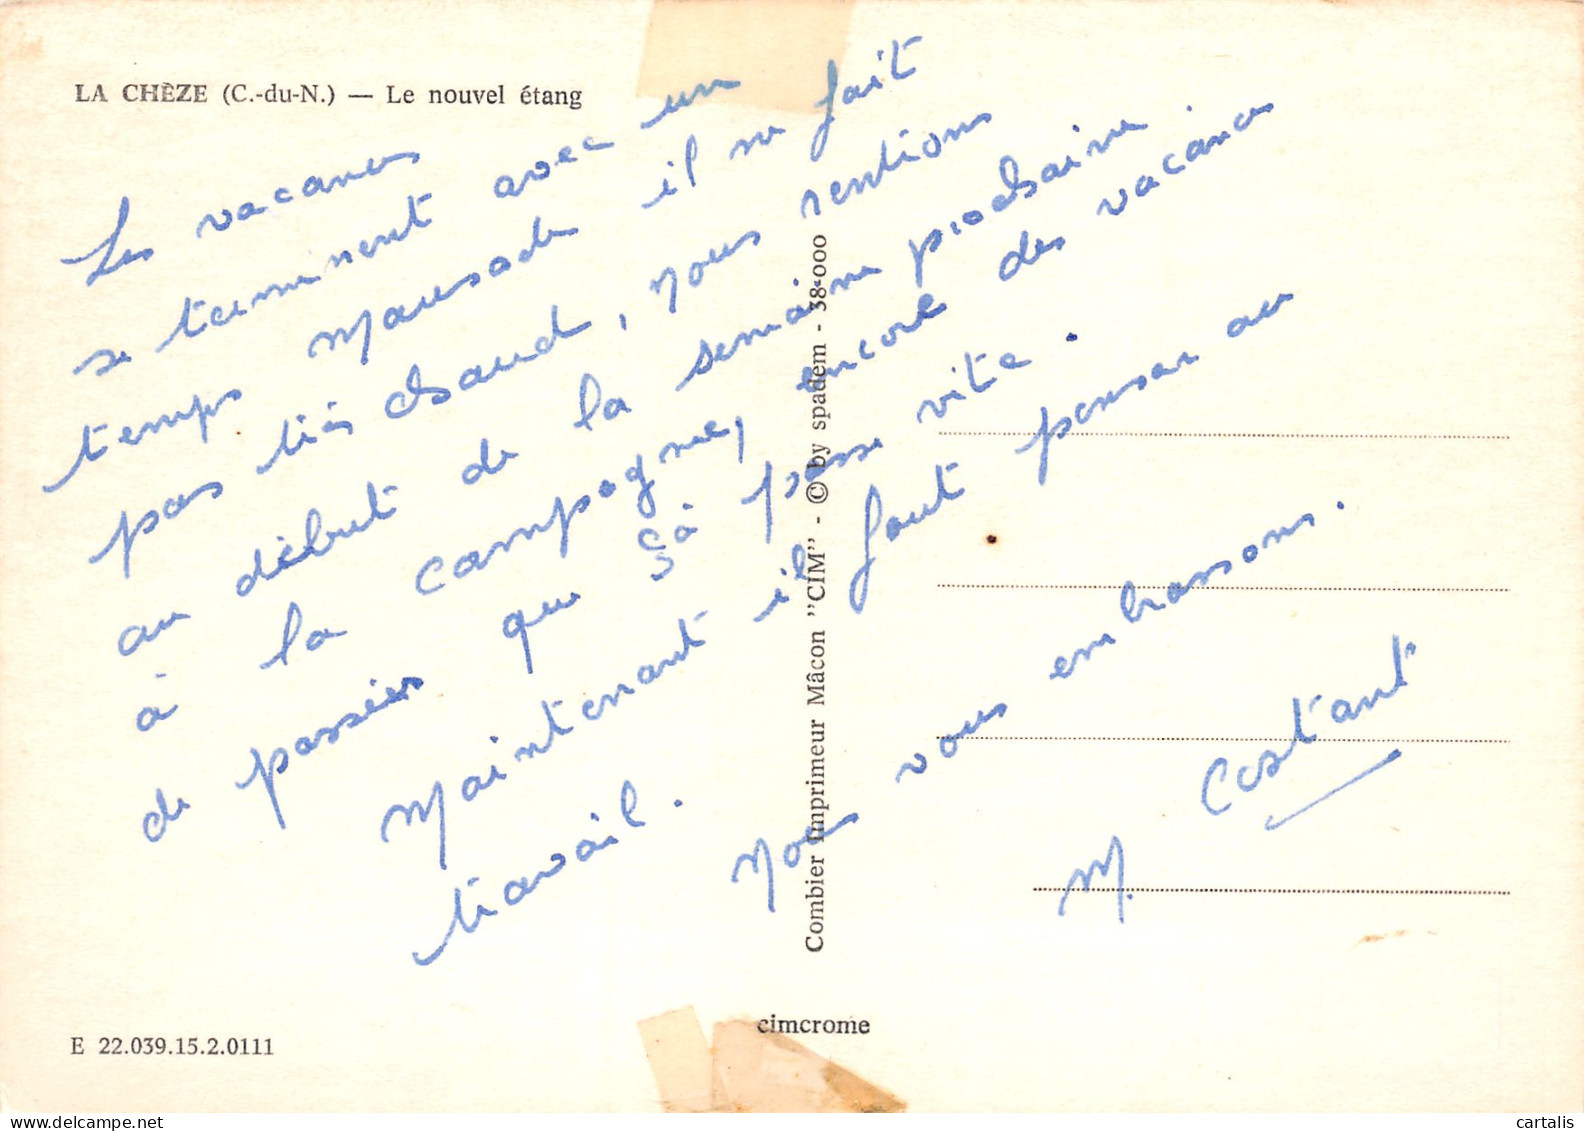 LA CHÈZE (C.-du-N.) — Le nouvel étang
Les vacances
se terminent avec un
temps maussade il ne fait
pas très chaud, nous rentions
au début de la semaine prochaine
à la campagne, encore des vacances
de passées que ça passe vite.
Maintenant il faut penser au
travail.
Nous vous embrassons.
M. Costant
Combier Imprimeur Mâcon "CIM" - © by spadem - 38-000
cimcrome
E 22.039.15.2.0111
cartalis